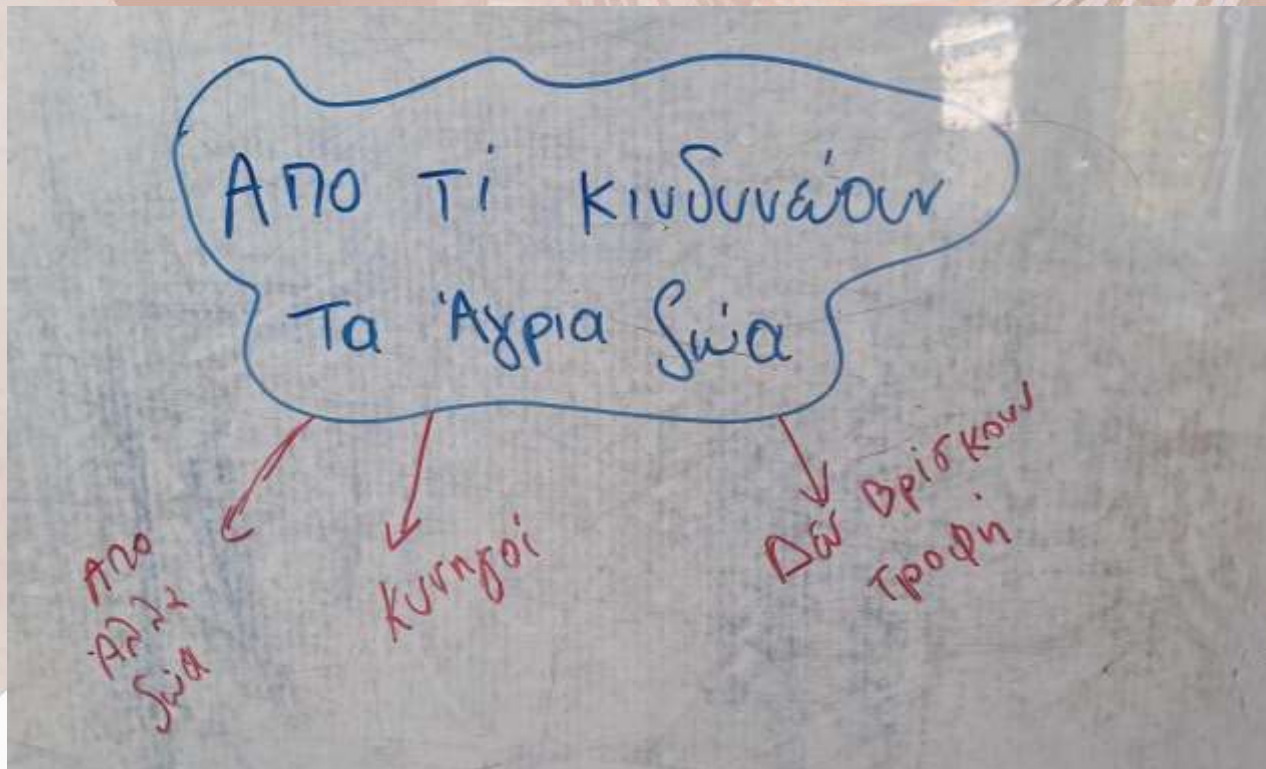 Απο Τί κινδυνεύουν
Τα Άγρια ζώα
Απο
Άλλα
ζώα
Κυνηγοί
Δεν Βρίσκουν
Τροφή